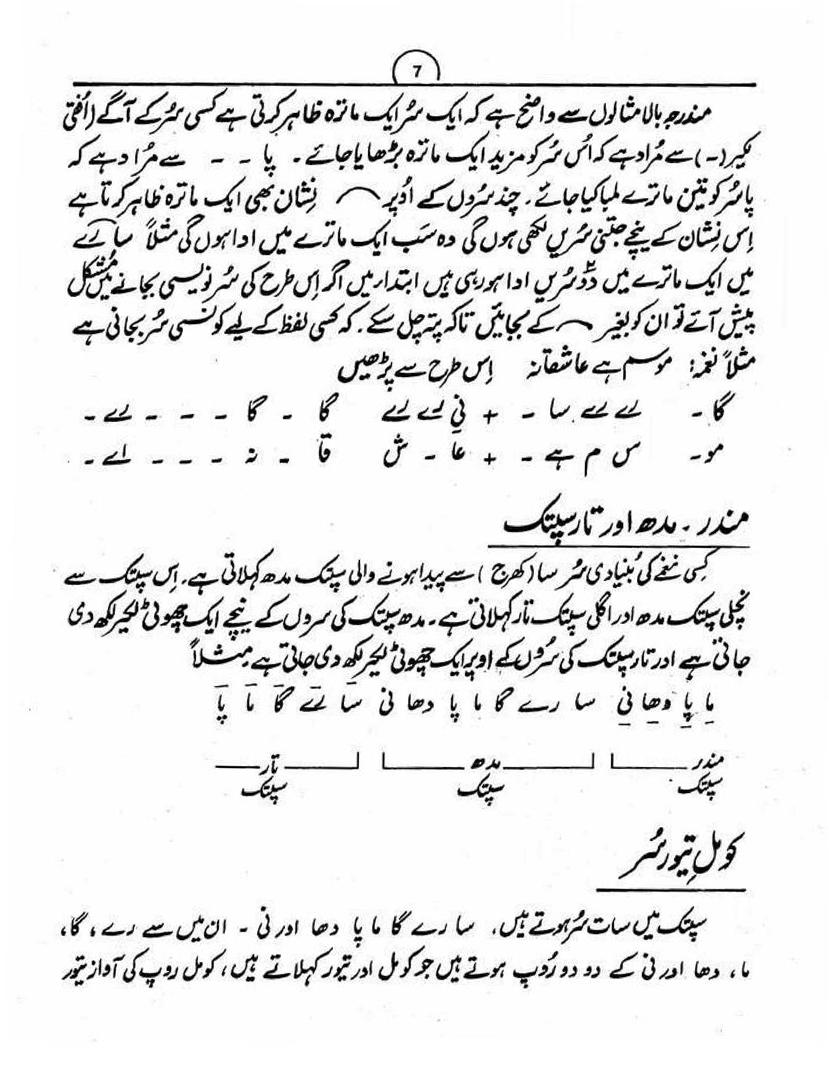 7
مندرجہ بالا مثالوں سے واضح ہے کہ ایک سُر ایک ماترہ ظاہر کرتی ہے کسی سُر کے آگے (اُفقی
لکیر (-) سے مُراد ہے کہ اُس سُر کو مزید ایک ماترہ بڑھایا جائے ۔ پا - - سے مُراد ہے کہ
پا سُر کو تین ماترے لمبا کیا جائے ۔ چند سُروں کے اُوپر ⌒ نِشان بھی ایک ماترہ ظاہر کرتا ہے
اِس نِشان کے نیچے جتنی سُریں لکھی ہوں گی وہ سَب ایک ماترے میں ادا ہوں گی مثلاً سارے
میں ایک ماترے میں دّو سُریں ادا ہو رہی ہیں ابتدار میں اگر اِس طرح کی سُر نویسی بجانے میں مُشکل
پیش آئے تو ان کو بغیر ⌒ کے بجائیں تاکہ پتہ چل سکے ۔ کہ کسی لفظ کے لیے کونسی سُر بجانی ہے
مثلاً نغمہ: موسم ہے عاشقانہ اِس طرح سے پڑھیں
گا - رے رے سا - + نِی رے رے گا - گا - - - رے -
مو - س م ہے - + عا - ش قا - نہ - - - اے -
مندر ۔ مدھ اور تار سپتک
کِسی نغمے کی بُنیادی سُر سا (کھرج) سے پیدا ہونے والی سپتک مدھ کہلاتی ہے ۔ اِس سپتک سے
نچلی سپتک مدھ اور اگلی سپتک تار کہلاتی ہے ۔ مدھ سپتک کی سروں کے نیچے ایک چھوٹی لکیر لکھ دی
جاتی ہے اور تار سپتک کی سُروں کے اوپر ایک چھوٹی لکیر لکھ دی جاتی ہے مِثلاً
ما پا دھا نی سا رے گا ما پا دھا نی سا رے گا ما پا
مندر مدھ تار
سپتک سپتک سپتک
کومل تیور سُر
سپتک میں سات سُر ہوتے ہیں ، سا رے گا ما پا دھا اور نی - ان میں سے رے ، گا ،
ما ، دھا اور نی کے دو دو رُوپ ہوتے ہیں جو کومل اور تیور کہلاتے ہیں ، کومل روپ کی آواز تیور